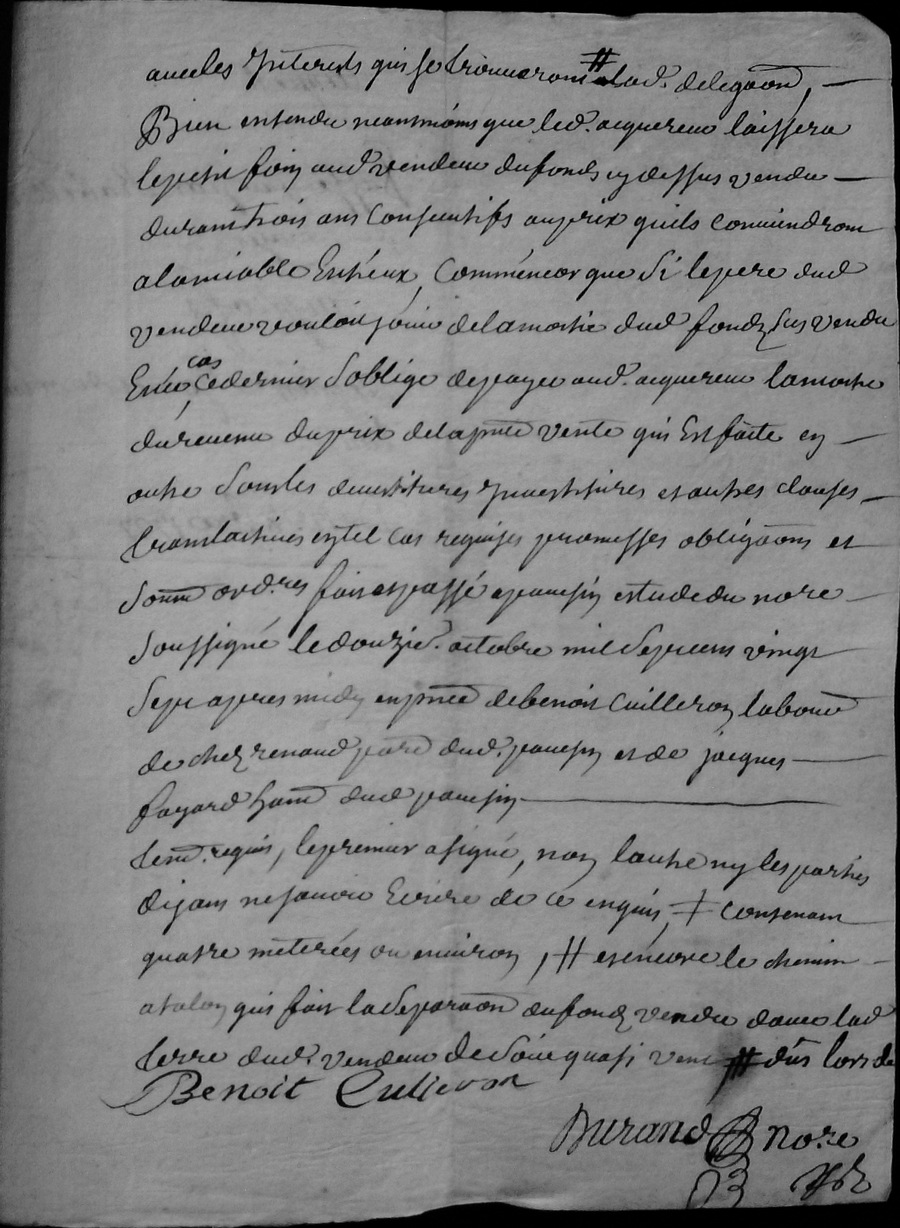 avecles Interests quise trouveront # alad. delega͠on, —
Bien entendu neantmoins que led. acquereur laissera
lepetit foin aud vendeur dufonds cy dessus vendu —
durant trois ans consecutifs auprix quils conviendront
alamiable Entreux, Comme encor que Si lepere dud
vendeur vouloit jouir delamoitié dud fondz sus vendu
En ce cas ce dernier Soblige depayer aud. acquereur lamoitié
durevenu duprix delapnte vente qui Est faite en —
outre Soubs les devestitures Investitures et autres clauses —
translatives en tel cas requises promesses obliga͠ons et
Soum ord.res fait et passé apavesin estude du no.re —
Soussigné ledouzie. octobre mil Sept cens vingt
Sept apres midy en pnce debenoit Cuilleron labour
de chez renaud par dud. pavesin et de jacques —
fayard hant dud pavesin —
tem. requis, lepremier a signé, non lautre ny les parties
dejans ne savoir Ecrire de ce enquis, ǂ contenant
quatre meterées ou environ, # et encore le chemin —
atalon qui fait la Separa͠on dufondz vendu davec lad
terre dud. vendeur de Soir quasi vent # dus lors de
Benoit Culieron
Durand no.re